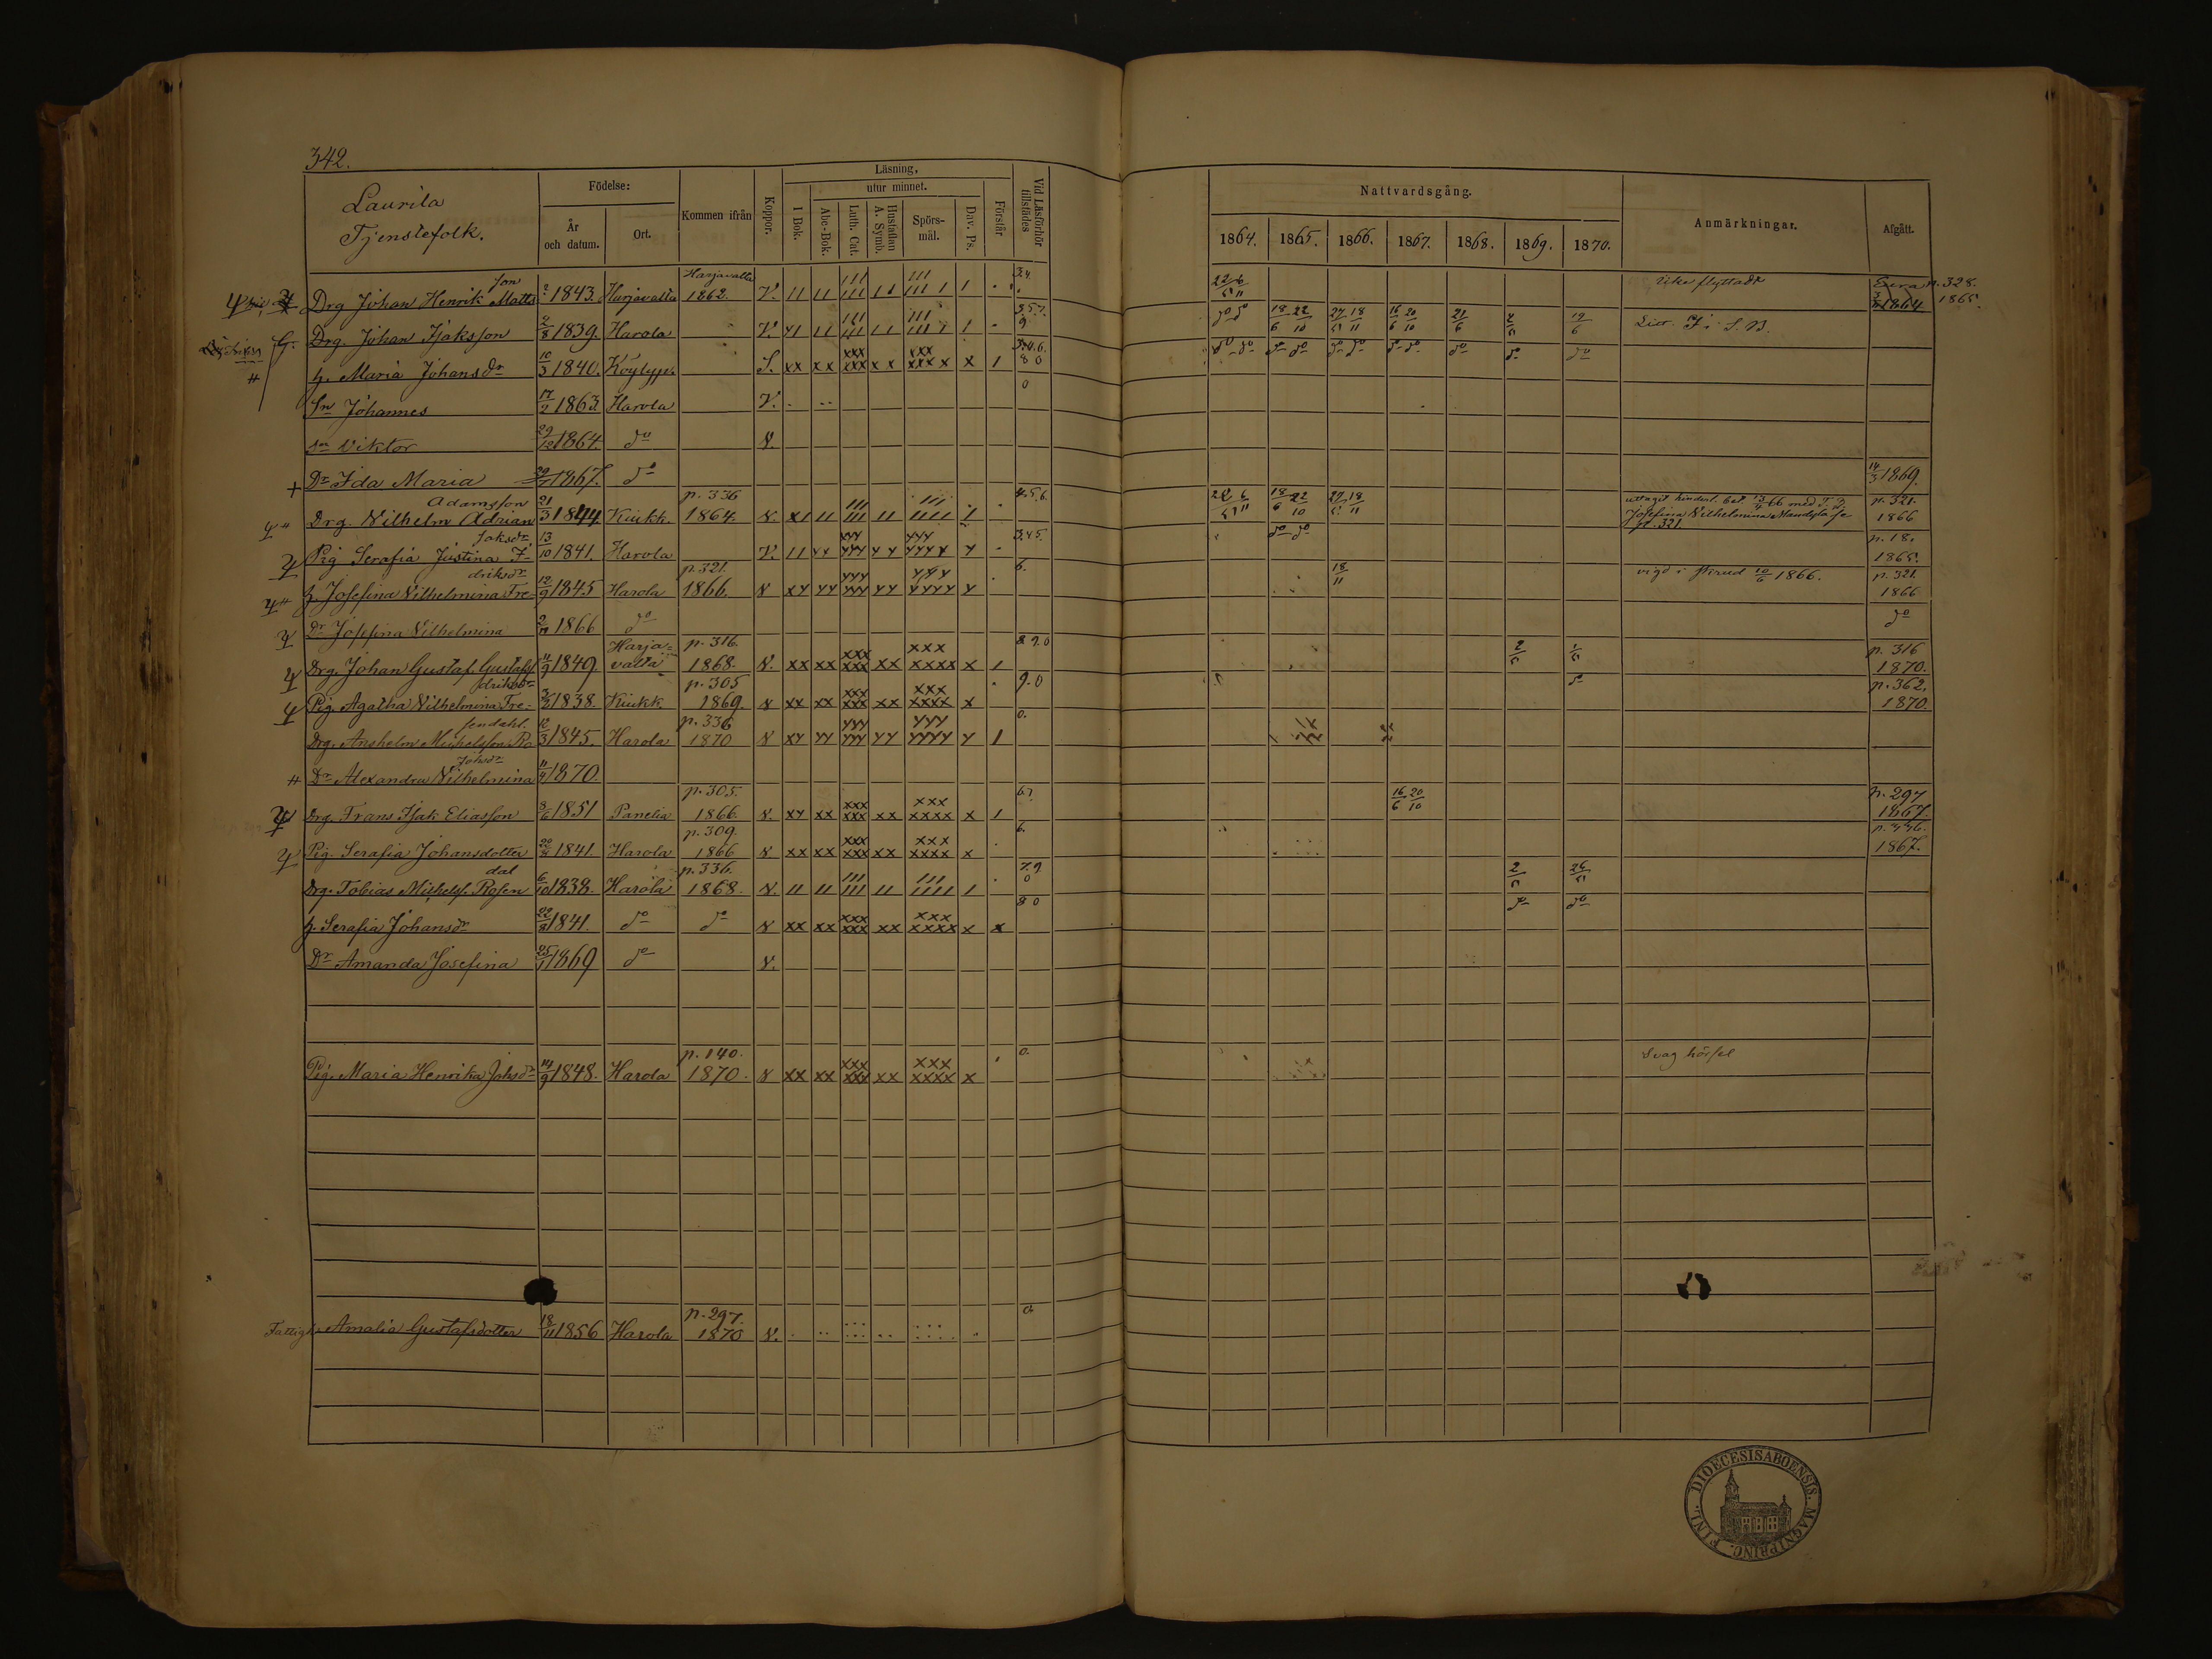 342.
Laurila
Tjenstefolk.
Födelse:
År och datum.
Ort.
Kommen ifrån
Koppor.
Läsning,
utur minnet.
I Bok.
Abc-Bok.
Luth. Cat.
Hustaflan A. Symb.
Spörs-mål.
Dav. Ps.
Förstår
Vid Läsförhör tillstädes
Nattvardsgång.
1864. 1865. 1866. 1867. 1868. 1869. 1870.
Anmärkningar.
Afgått.
Drg Johan Henrik Matts son 1843. Harjavalta Harjavalta 1862. V. 3.4. 22/5 6/11 Eura p. 328. 1864 1865.
Drg. Johan Isaksson 2/8 1839. Harola V. 3.5.7. 9 d:o d:o 18/6 22/10 27/5 18/11 16/6 20/10 21/6 2/5 19/6
h. Maria Johansdr 10/3 1840. Köylypo. S. xx xx xxx xxx x x xxx xxx x x 1 3.4.6. 8 0 d:o d:o d:o d:o d:o d:o d:o d:o d:o d:o d:o
Sn Johannes 17/2 1863 Harola V. 0
sn Viktor 29/12 1864 d:o V.
+ Dr Ida Maria 1867. d:o 14/3 1869.
Drg. Vilhelm Adrian Adamsson 21/3 1844 Kiukk. p. 336 1864. V. 4.5.6. 22/5 6/11 18/6 22/10 27/5 18/11 uttagit hinderl. bet 13/4 66 med Josefina Vilhelmina p. 321. p. 321. 1866
Pig Serafia Justina Jaksdr 13/10 1841. Harola V. 3.4.5. d:o d:o p. 18. 1865.
h. Josefina Vilhelmina Fredriksdr 12/9 1845 Harola p. 321. 1866. V 6. 18/11 vigd i 10/6 1866. p. 321. 1866
Dr Josefina Vilhelmina 1866 d:o d:o
Drg. Johan Gustaf Gustafsf 11/9 1849 Harjavalta p. 316. 1868. V. xx xx xxx xxx xx xxx xxxx x 1 8 9.0 2/5 1/5 p. 316 1870.
Pig. Agatha Vilhelmina Fredriksdr 1838. Kiukk. p. 305 1869. V xx xx xxx xxx xx xxx xxxx x 9.0 d:o p. 362. 1870.
Drg. Anshelm Michelsson Rosendahl. 12/3 1845. Harola p. 336 1870 V 0.
Dr Alexandra Vilhelmina Johsdr 11/4 1870.
Drg. Frans Isak Eliasson 8/6 1851 Panelia p. 305. 1866. V. xx xx xxx xxx xx xxx xxxx x 1 6.7 16/6 20/10 p. 297 1867.
Pig. Serafia Johansdotter 1841. Harola p. 309. 1866 V xx xx xxx xxx xx xxx xxxx x 6. 1867.
Drg. Tobias Michelsf. Rosendal 6/10 1838. Harola p. 336. 1868. V. 7.9 0 2/5 26/5
h. Serafia Johansdr 22/8 1841. d:o d:o V xx xx xxx xxx xx xxx xxxx x x 8 0 d:o d:o
Dr Amanda Josefina 25/1 1869 d:o V.
Pig. Maria Henrika Johsdr 14/9 1848. Harola p. 140. 1870. V xx xx xxx xxx xx xxx xxxx x 0. Svag hörsel
Fattigh. Amalia Gustafsdotter 18/11 1856 Harola p. 297. 1870 V. 0
DIOECESIS ABOENSIS. MAGNI PRINC. FINL.